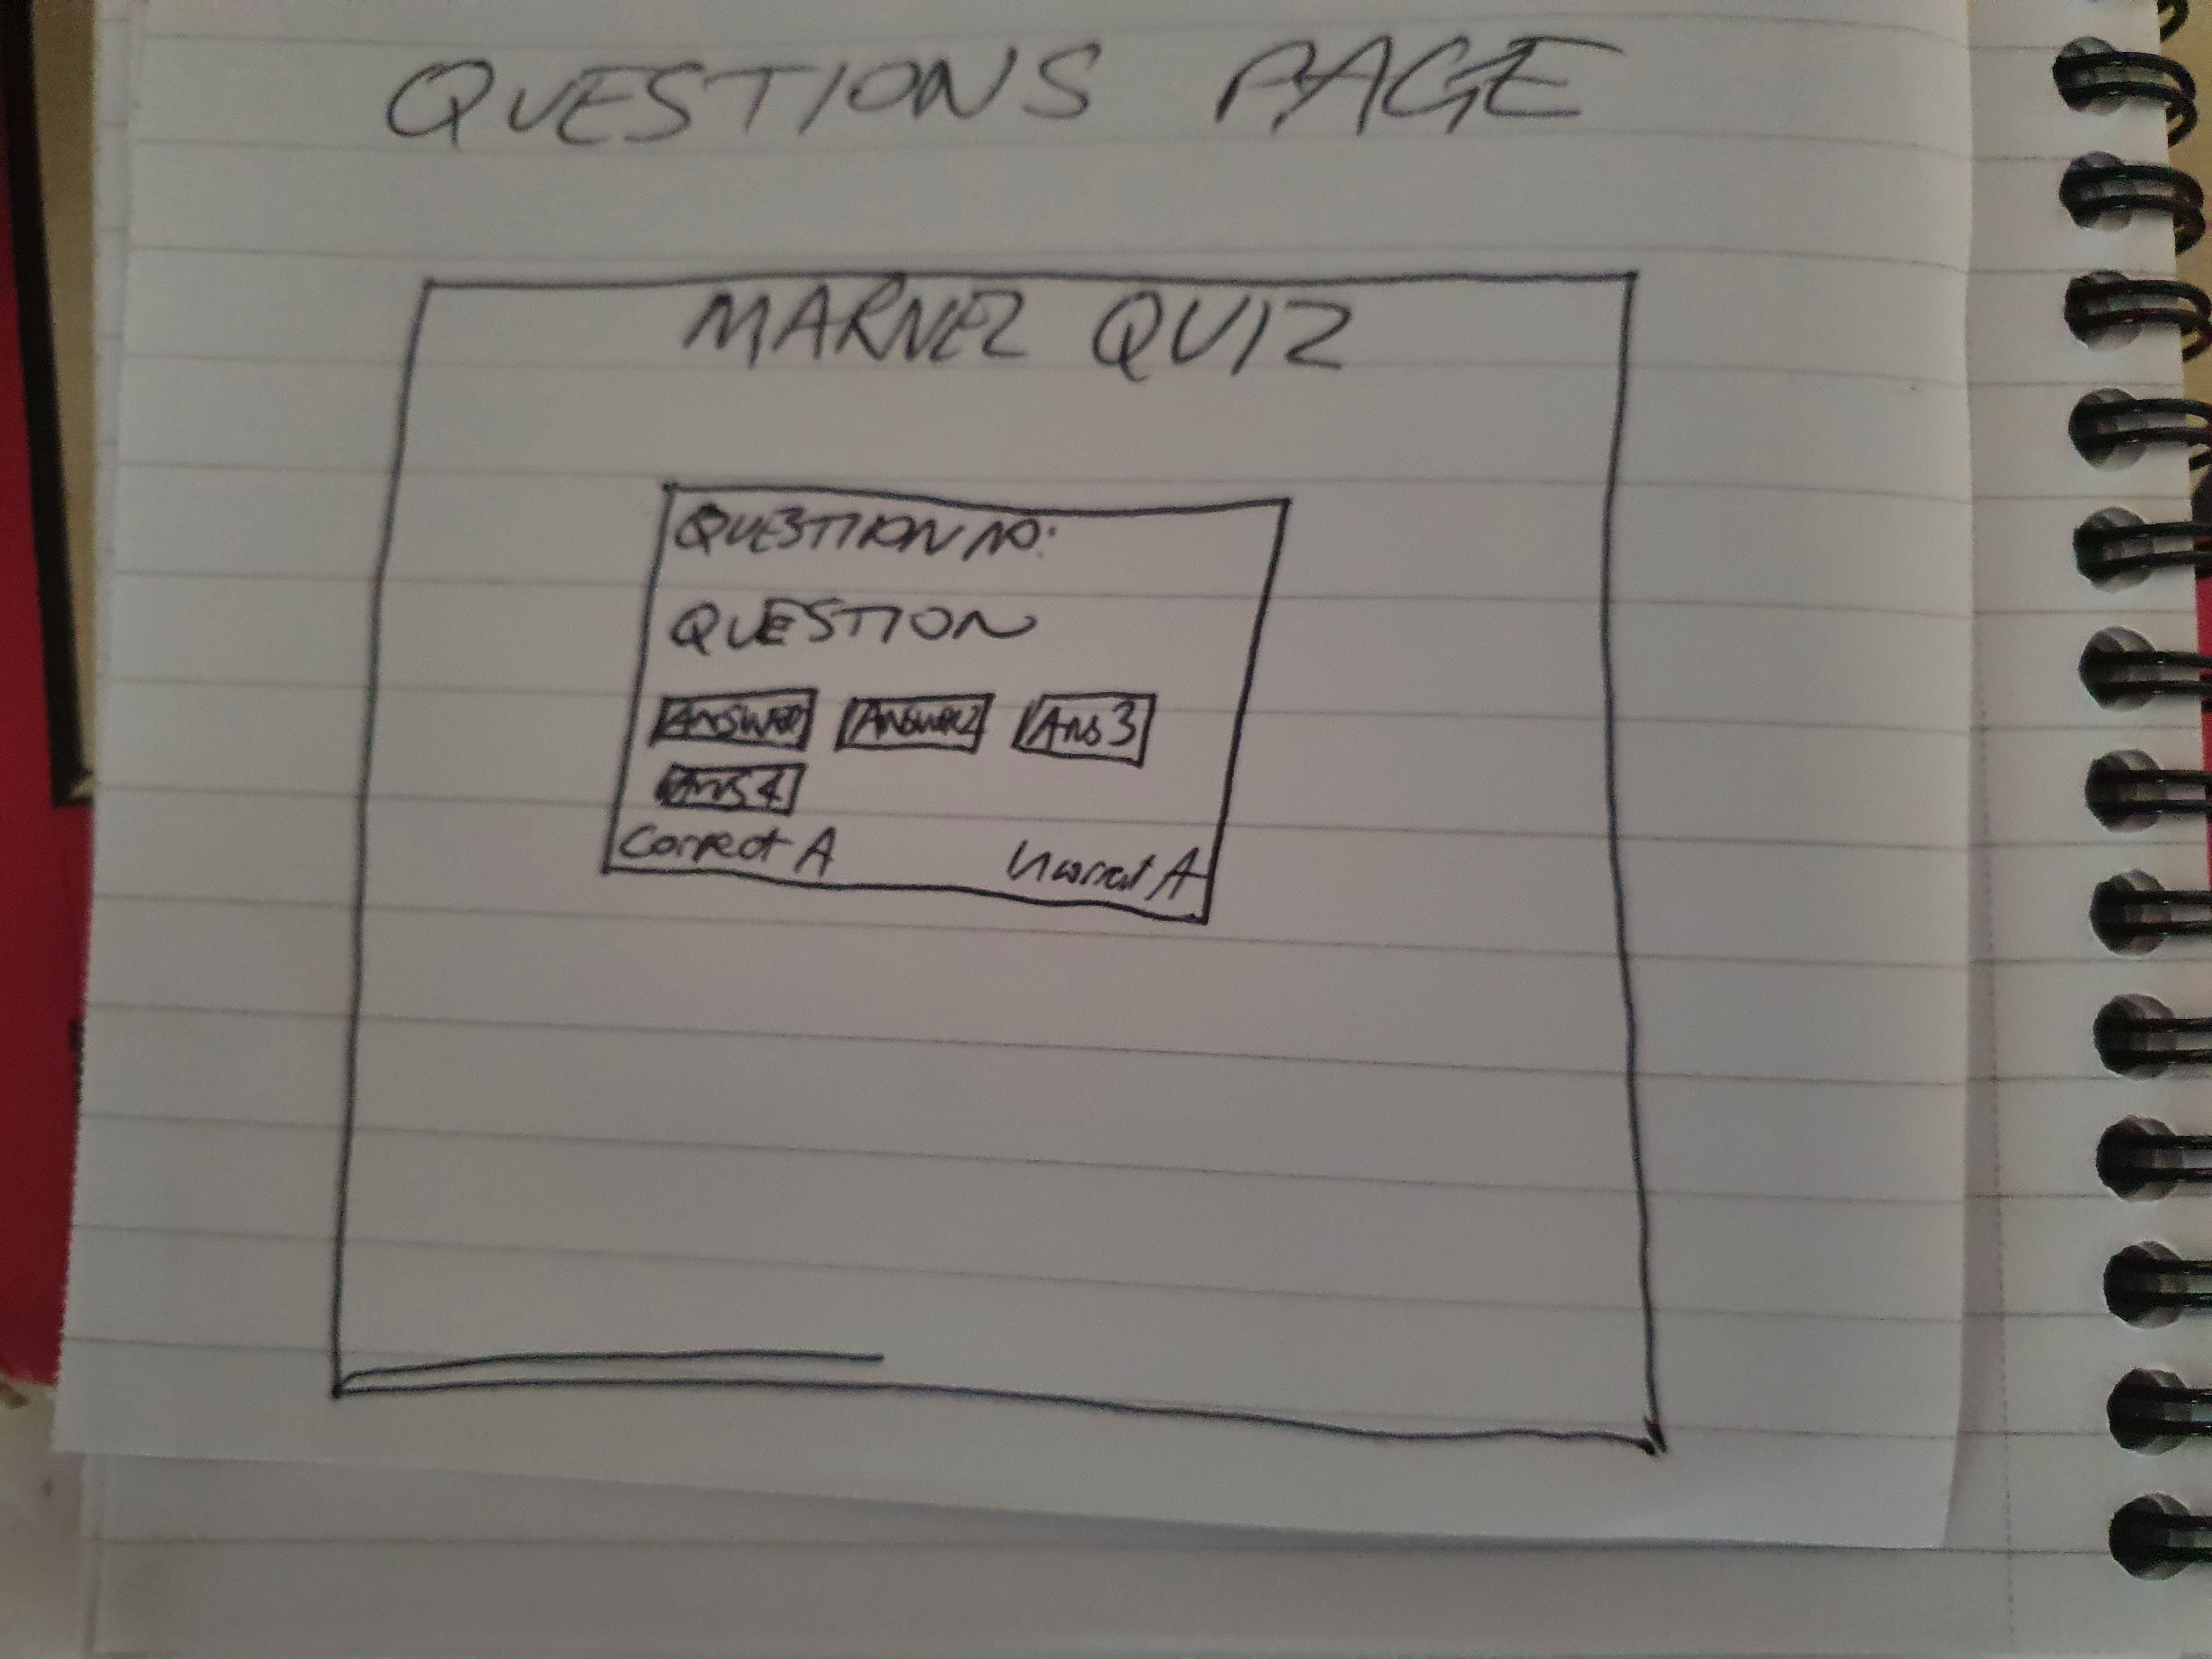 QUESTIONS PAGE
MARVEL QUIZ
QUESTION NO:
QUESTION
Answer Answer2 Ans 3
Ans 4
Correct A A